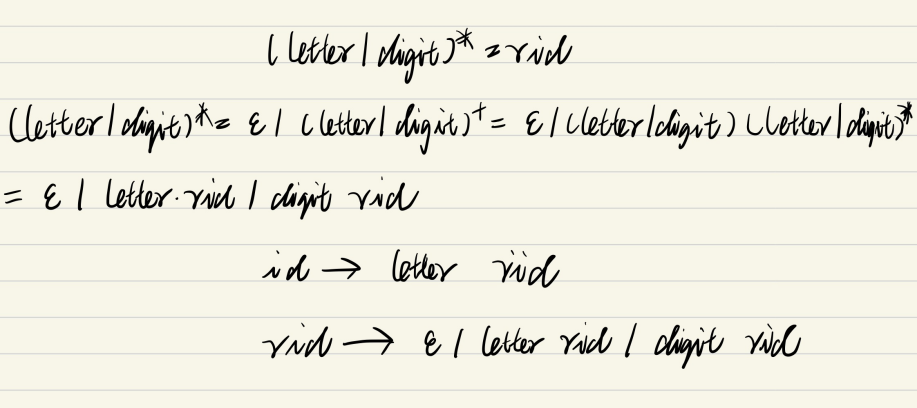 (letter|digit)* = rid
(letter|digit)* = ε | (letter|digit)⁺ = ε | (letter|digit) (letter|digit)*
= ε | letter·rid | digit rid
id → letter rid
rid → ε | letter rid | digit rid